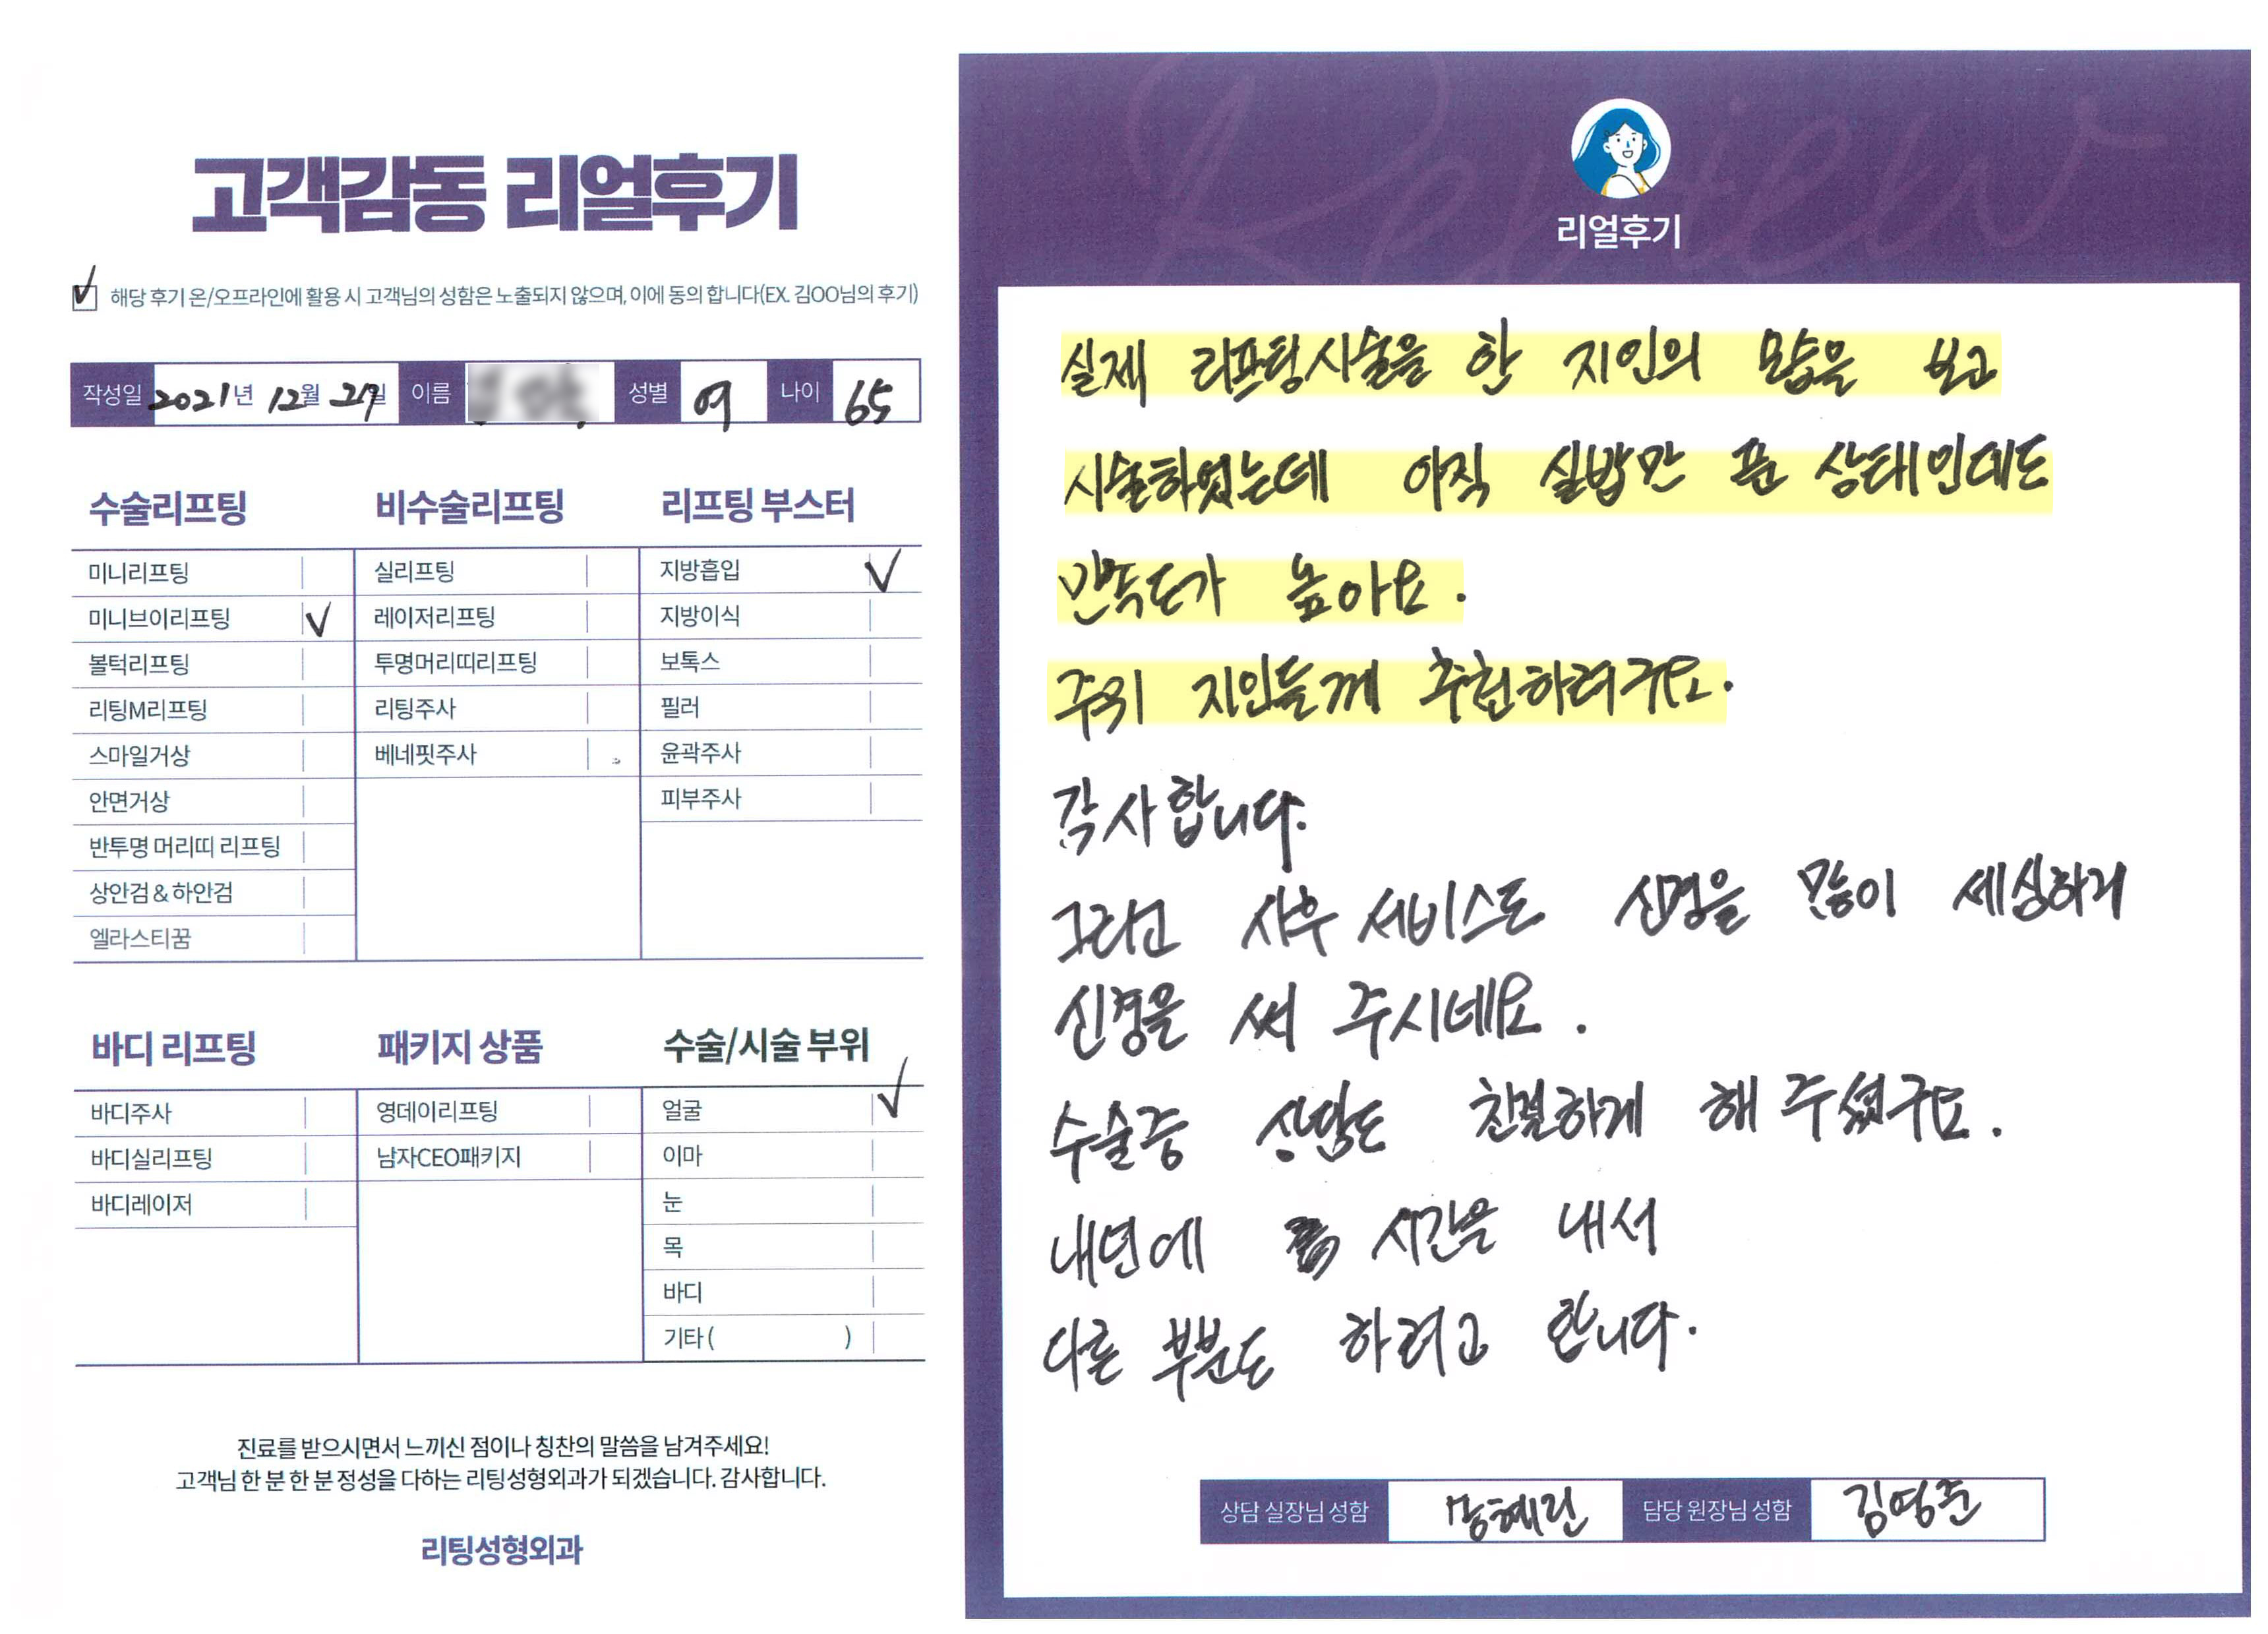 고객감동 리얼후기
해당 후기 온/오프라인에 활용 시 고객님의 성함은 노출되지 않으며, 이에 동의 합니다(EX. 김OO님의 후기)
작성일 2021년 12월 29일 이름 성별 여 나이 65
수술리프팅
미니리프팅
미니브이리프팅
볼턱리프팅
리팅M리프팅
스마일거상
안면거상
반투명 머리띠 리프팅
상안검 & 하안검
엘라스티꿈
비수술리프팅
실리프팅
레이저리프팅
투명머리띠리프팅
리팅주사
베네핏주사
리프팅 부스터
지방흡입
지방이식
보톡스
필러
윤곽주사
피부주사
바디 리프팅
바디주사
바디실리프팅
바디레이저
패키지 상품
영데이리프팅
남자CEO패키지
수술/시술 부위
얼굴
이마
눈
목
바디
기타 ( )
진료를 받으시면서 느끼신 점이나 칭찬의 말씀을 남겨주세요!
고객님 한 분 한 분 정성을 다하는 리팅성형외과가 되겠습니다. 감사합니다.
리팅성형외과
Review
리얼후기
실제 리프팅시술을 한 지인의 모습을 보고
시술하였는데 아직 실밥만 푼 상태인데도
만족도가 높아요.
주위 지인들께 추천하려구요.
감사합니다.
그리고 사후 서비스도 신경을 많이 세심하게
신경을 써 주시네요.
수술중 상담도 친절하게 해 주셨구요.
내년에 시간을 내서
다른 부분도 하려고 합니다.
상담 실장님 성함 혜린 담당 원장님 성함 김영준